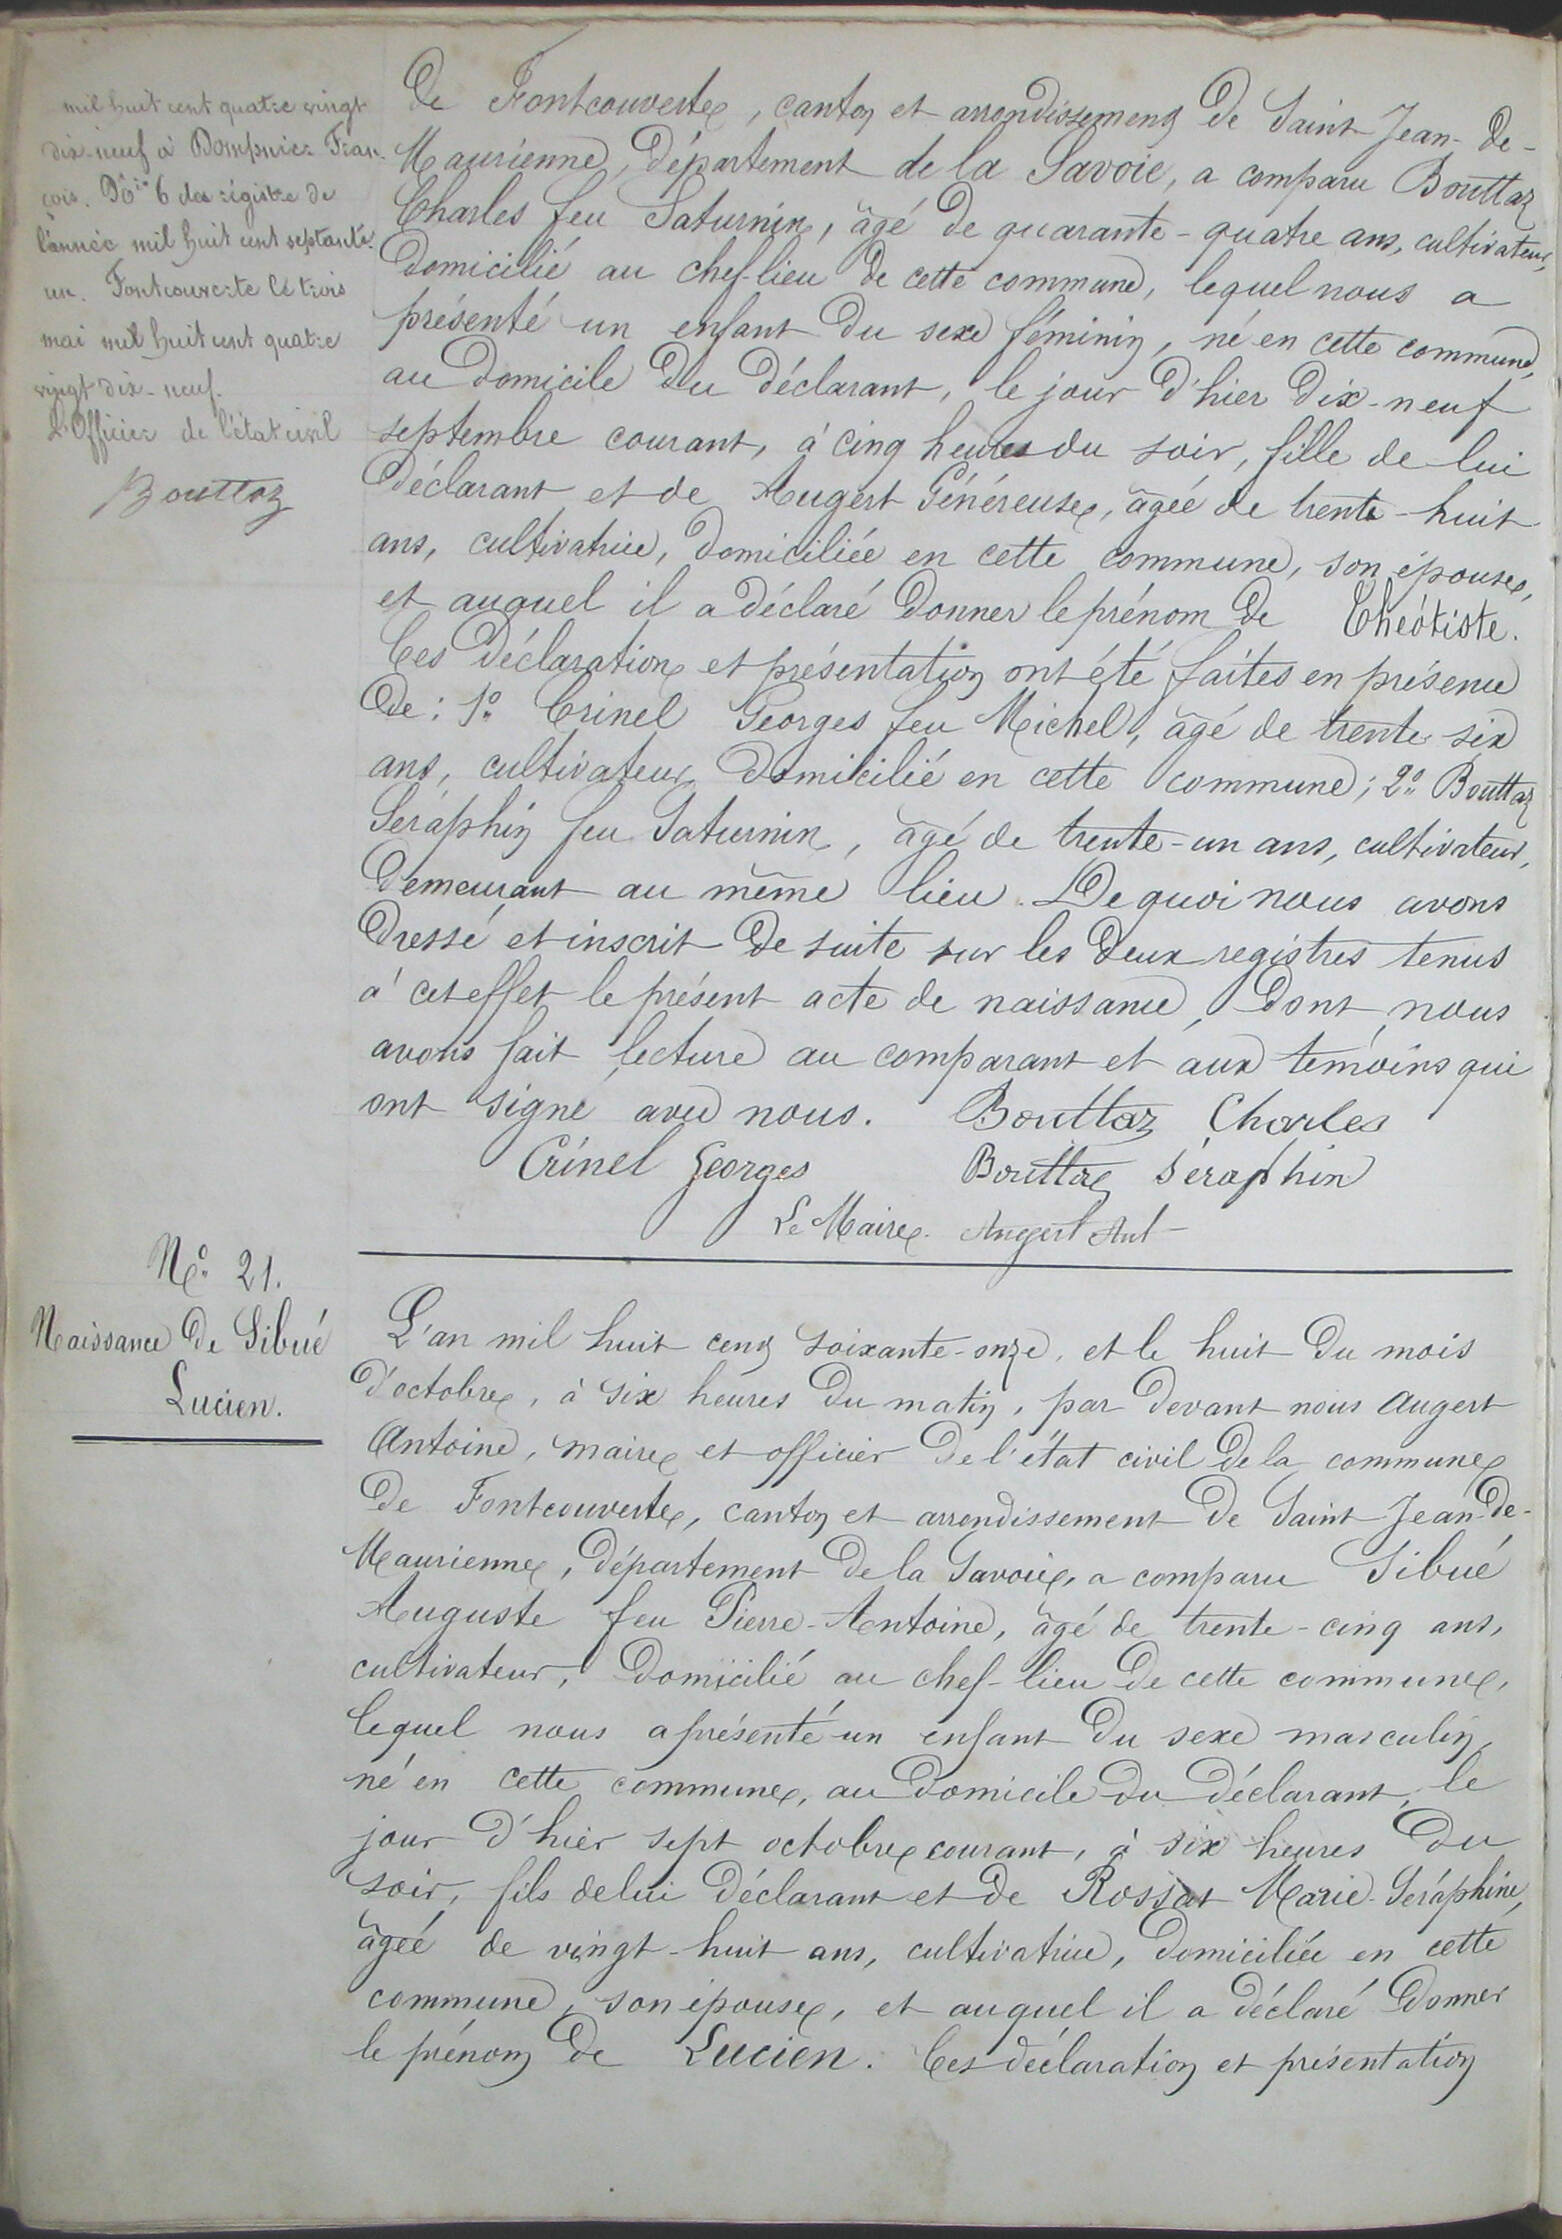 mil huit cent quatre vingt
dix-neuf à Dompnier Fran-
çois. N° 6 des régistre de
l'année mil huit cent septante
un. Fontcouverte le trois
mai mil huit cent quatre
vingt dix-neuf.
L'Officier de l'état civil
Bouttaz
de Fontcouverte, canton et arrondissement de Saint-Jean-de-
Maurienne, département de la Savoie, a comparu Bouttaz
Charles feu Saturnin, âgé de quarante-quatre ans, cultivateur,
domicilié au chef-lieu de cette commune, lequel nous a
présenté un enfant du sexe féminin, né en cette commune,
au domicile du déclarant, le jour d'hier dix-neuf
septembre courant, à cinq heures du soir, fille de lui
déclarant et de Augert Généreuse, âgée de trente-huit
ans, cultivatrice, domiciliée en cette commune, son épouse,
et auquel il a déclaré donner le prénom de Théotiste.
Ces déclaration et présentation ont été faites en présence
de: 1° Crinel Georges feu Michel, âgé de trente six
ans, cultivateur domicilié en cette commune; 2° Bouttaz
Séraphin feu Saturnin, âgé de trente-un ans, cultivateur,
demeurant au même lieu. De quoi nous avons
dressé et inscrit de suite sur les deux registres tenus
à cet effet le présent acte de naissance, dont nous
avons fait lecture au comparant et aux témoins qui
ont signé avec nous. Bouttaz Charles
Crinel Georges Bouttaz Séraphin
Le Maire. Augert Ant
N° 21.
Naissance de Sibué
Lucien.
L'an mil huit cent soixante-onze, et le huit du mois
d'octobre, à six heures du matin, par devant nous Augert
Antoine, maire et officier de l'état civil de la commune
de Fontcouverte, canton et arrondissement de Saint-Jean-de-
Maurienne, département de la Savoie, a comparu Sibué
Auguste feu Pierre-Antoine, âgé de trente-cinq ans,
cultivateur, domicilié au chef-lieu de cette commune,
lequel nous a présenté un enfant du sexe masculin,
né en cette commune, au domicile du déclarant, le
jour d'hier sept octobre courant, à six heures du
soir, fils de lui déclarant et de Rossat Marie-Séraphine,
âgée de vingt-huit ans, cultivatrice, domiciliée en cette
commune, son épouse, et auquel il a déclaré donner
le prénom de Lucien. Ces déclaration et présentation